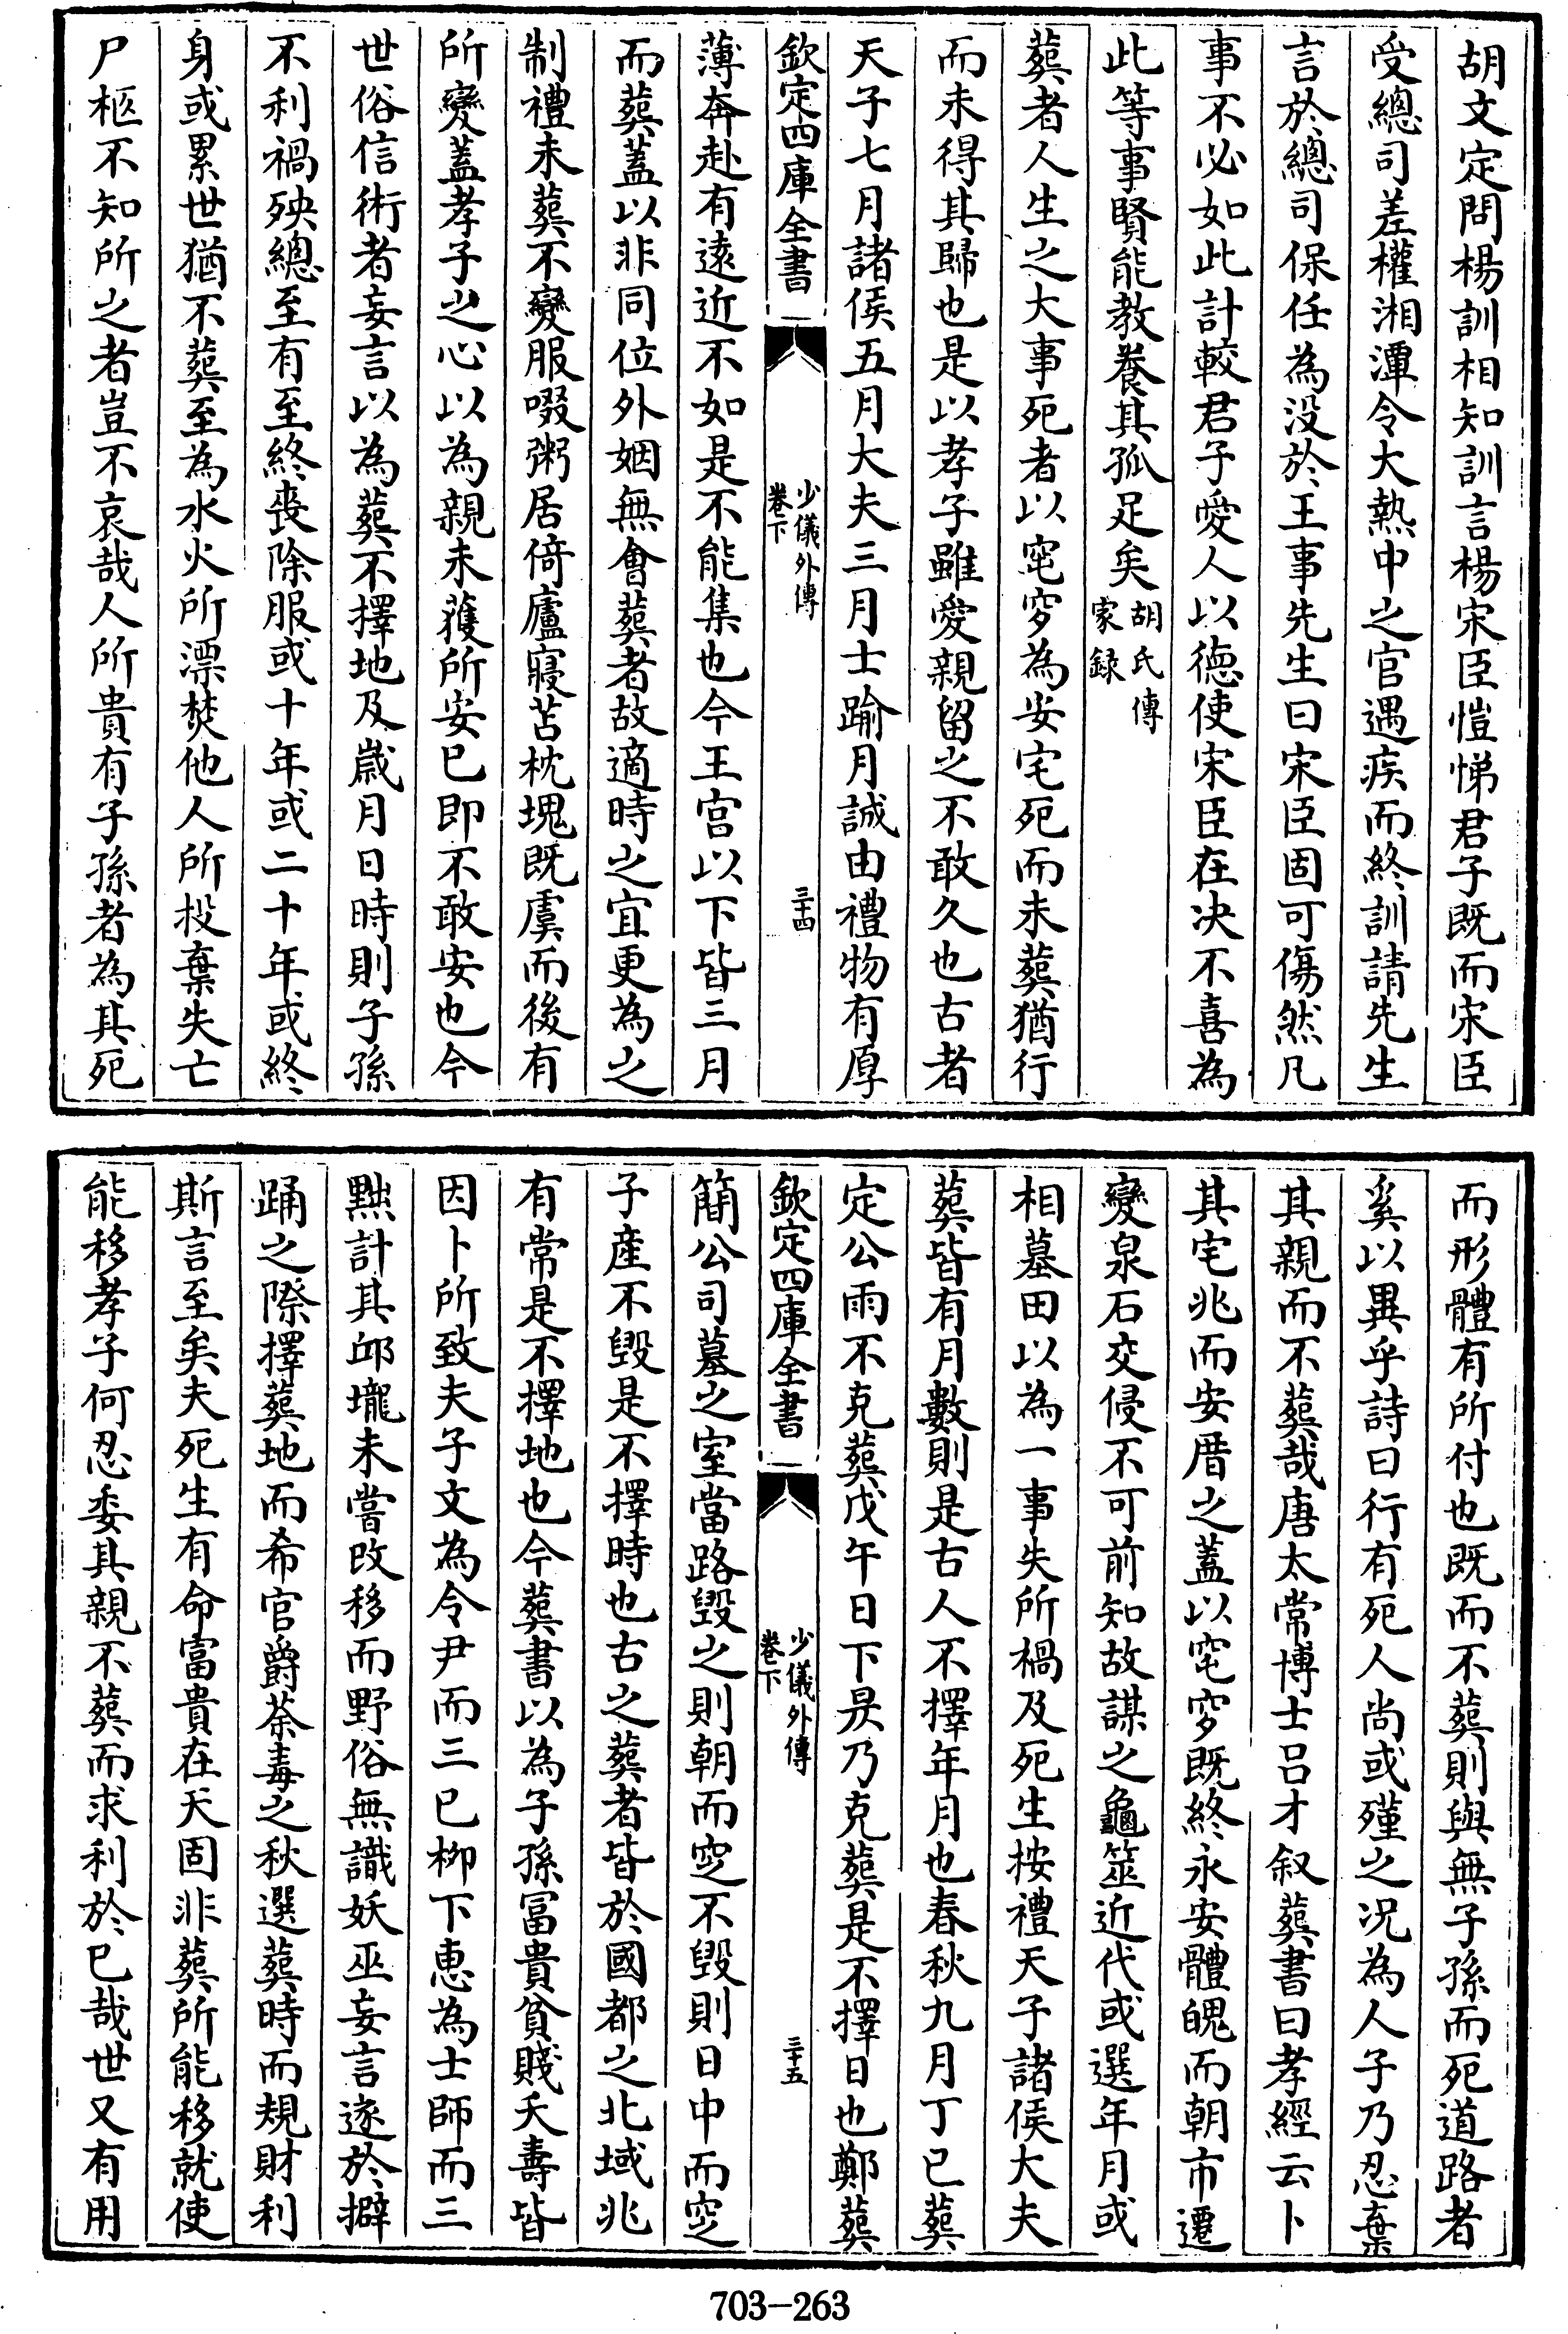 胡文定問楊訓相知訓言楊宋臣愷悌君子既而宋臣
受總司差權湘潭令大熱中之官遇疾而終訓請先生
言於總司保任為没於王事先生曰宋臣固可傷然凡
事不必如此計較君子愛人以徳使宋臣在决不喜為
此等事賢能教養其孤足矣胡氏傳
家録
葬者人生之大事死者以窀穸為安宅死而未葬猶行
而未得其歸也是以孝子雖愛親留之不敢久也古者
天子七月諸侯五月大夫三月士踰月誠由禮物有厚
欽定四庫全書
少儀外傳
卷下
三十四
薄奔赴有逺近不如是不能集也今王宫以下皆三月
而葬蓋以非同位外姻無會葬者故適時之宜更為之
制禮未葬不變服啜粥居倚廬寢苫枕塊既虞而後有
所變蓋孝子之心以為親未獲所安已即不敢安也今
世俗信術者妄言以為葬不擇地及嵗月日時則子孫
不利禍殃總至有至終喪除服或十年或二十年或終
身或累世猶不葬至為水火所漂焚他人所投棄失亡
尸柩不知所之者豈不哀哉人所貴有子孫者為其死
而形體有所付也既而不葬則與無子孫而死道路者
奚以異乎詩曰行有死人尚或殣之况為人子乃忍棄
其親而不葬哉唐太常博士吕才叙葬書曰孝經云卜
其宅兆而安厝之蓋以窀穸既終永安體魄而朝市遷
變泉石交侵不可前知故謀之龜筮近代或選年月或
相墓田以為一事失所禍及死生按禮天子諸侯大夫
葬皆有月數則是古人不擇年月也春秋九月丁巳葬
定公雨不克葬戊午日下昃乃克葬是不擇日也鄭葬
欽定四庫全書
少儀外傳
卷下
三十五
簡公司墓之室當路毁之則朝而窆不毁則日中而窆
子産不毁是不擇時也古之葬者皆於國都之北域兆
有常是不擇地也今葬書以為子孫冨貴貧賤夭壽皆
因卜所致夫子文為令尹而三已栁下惠為士師而三
黜計其邱壠未嘗改移而野俗無識妖巫妄言遂於擗
踊之際擇葬地而希官爵荼毒之秋選葬時而規財利
斯言至矣夫死生有命富貴在天固非葬所能移就使
能移孝子何忍委其親不葬而求利於已哉世又有用
703-263